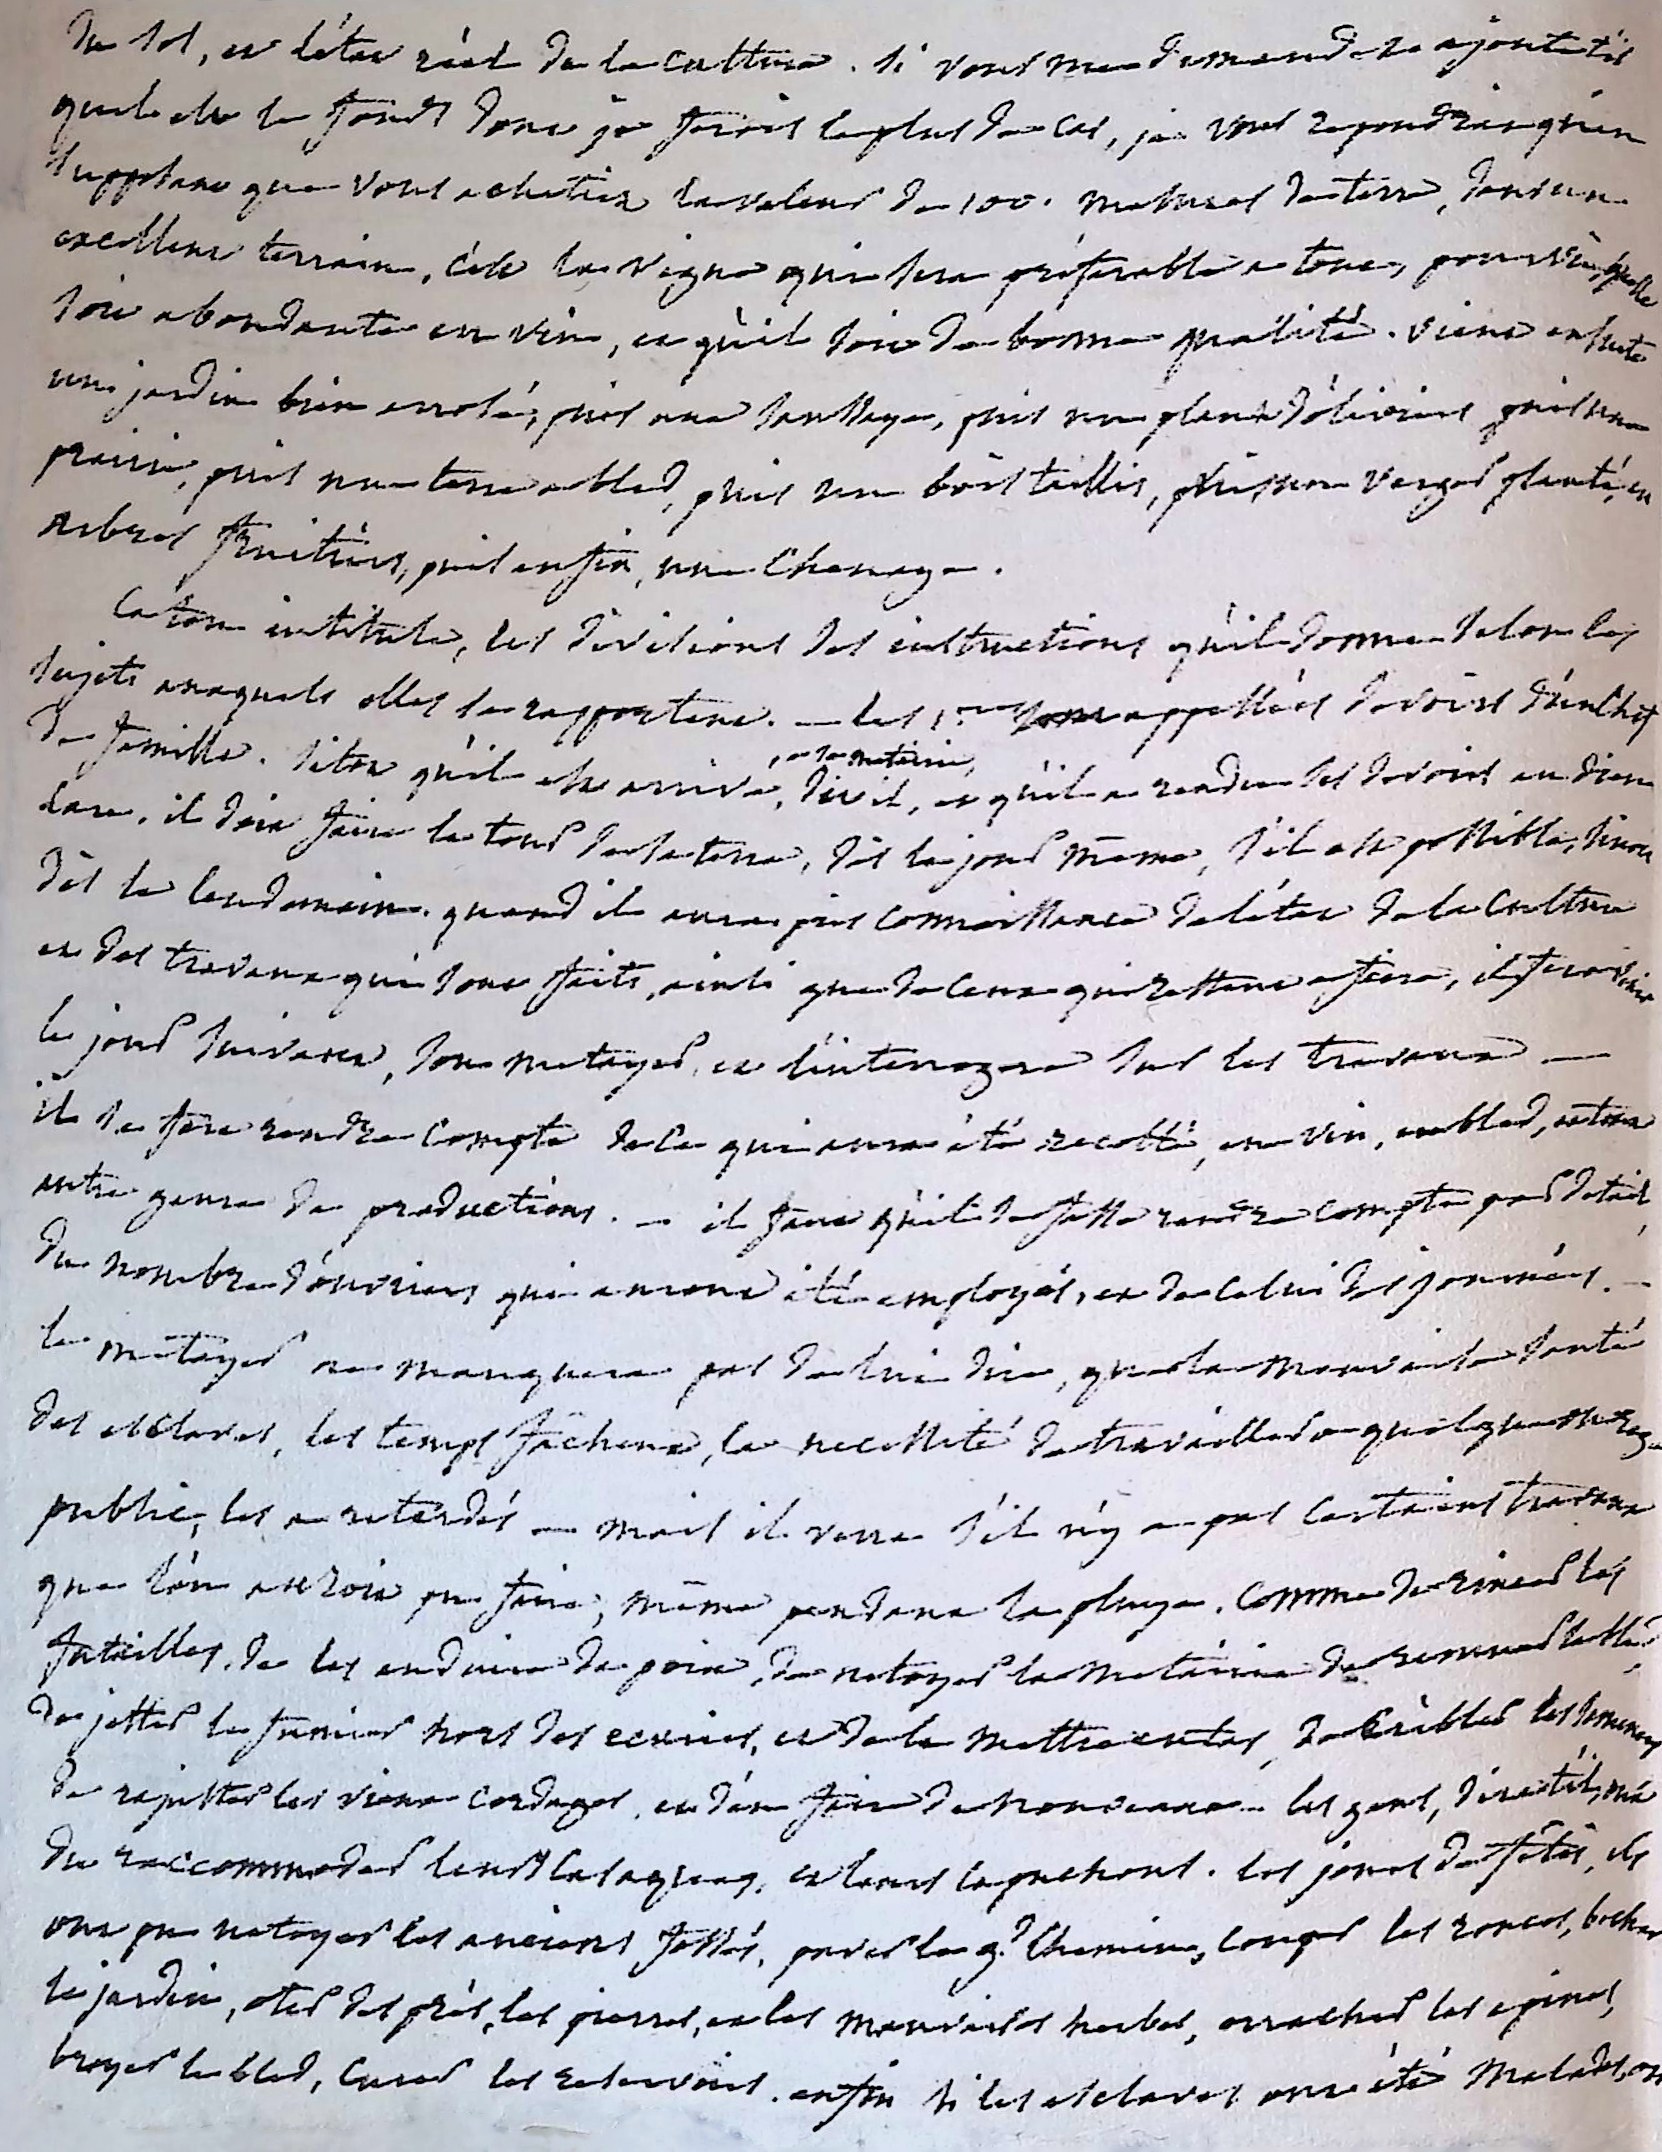 du sol, et l'état réel de la culture. si vous me demandez ajoute t'il
quel est le fonds dont je ferois le plus de cas, je vous repondrai qu'en
supposant que vous achetiez la valeur de 100. mesures de terre, dans un
excellent terrain, c'est la vigne qui sera préferable a tout, pourvû qu'elle
soit abondante en vin, et qu'il soit de bonne qualité. vient ensuite
un jardin bien arrosé, puis une saussaye, puis un plant d'oliviers puis une
prairie, puis une terre a bled, puis un bois taillis, puis un verger planté, en
arbres fruitiers, puis enfin, une chenaye.
Caton intitule, les divisions des instructions qu'il donne selon les
sujets auxquels elles se rapportent. — les 1.eres sont appellées devoirs d'un chef
de famille. sitot qu'il est arrivé,
, a sa metairie,
dit il, et qu'il a rendu ses devoirs au dieu
lare, il doit faire le tour de sa terre, dès le jour même, s'il est possible, sinon
dès le lendemain. quand il aura pris connoissance de l'état de la culture
et des travaux qui sont faits, ainsi que de ceux qui restent a faire, il fera venir
le jour suivant, son metayer, et l'interrogera sur les travaux —
il se fera rendre compte de ce qui aura été recolté, en vin, en bled, et tout
autre genre de productions. — il faut qu'il se fasse rendre compte par detail,
du nombre d'ouvriers qui auront été employés, et de celui des journées. —
le métayer ne manquera pas de lui dire, que la mauvaise santé
des esclaves, les temps fâcheux, la necessité de travailler a quelque ouvrage
public, les a retardés — mais il verra s'il n'y a pas certains travaux
que l'on auroit pu faire, même pendant la pluye. comme de rincer les
futailles, de les enduire de poix, de netoyer la metairie de remuer le bled,
de jetter le fumier hors des ecuries, et de le mettre en tas, de cribler les semences
de rajuster les vieux cordages, et d'en faire de nouveaux — les gens, dira t'il, ont
du raccommoder leurs casaques, et leurs capuchons. les jours de fêtes, ils
ont pu netoyer les anciens fossés, paver le g.d chemin, couper les ronces, becher
le jardin, oter des prés, les pierres, et les mauvaises herbes, arracher les epines,
broyer le bled, curer les reservoirs. enfin si les esclaves ont été malades, on